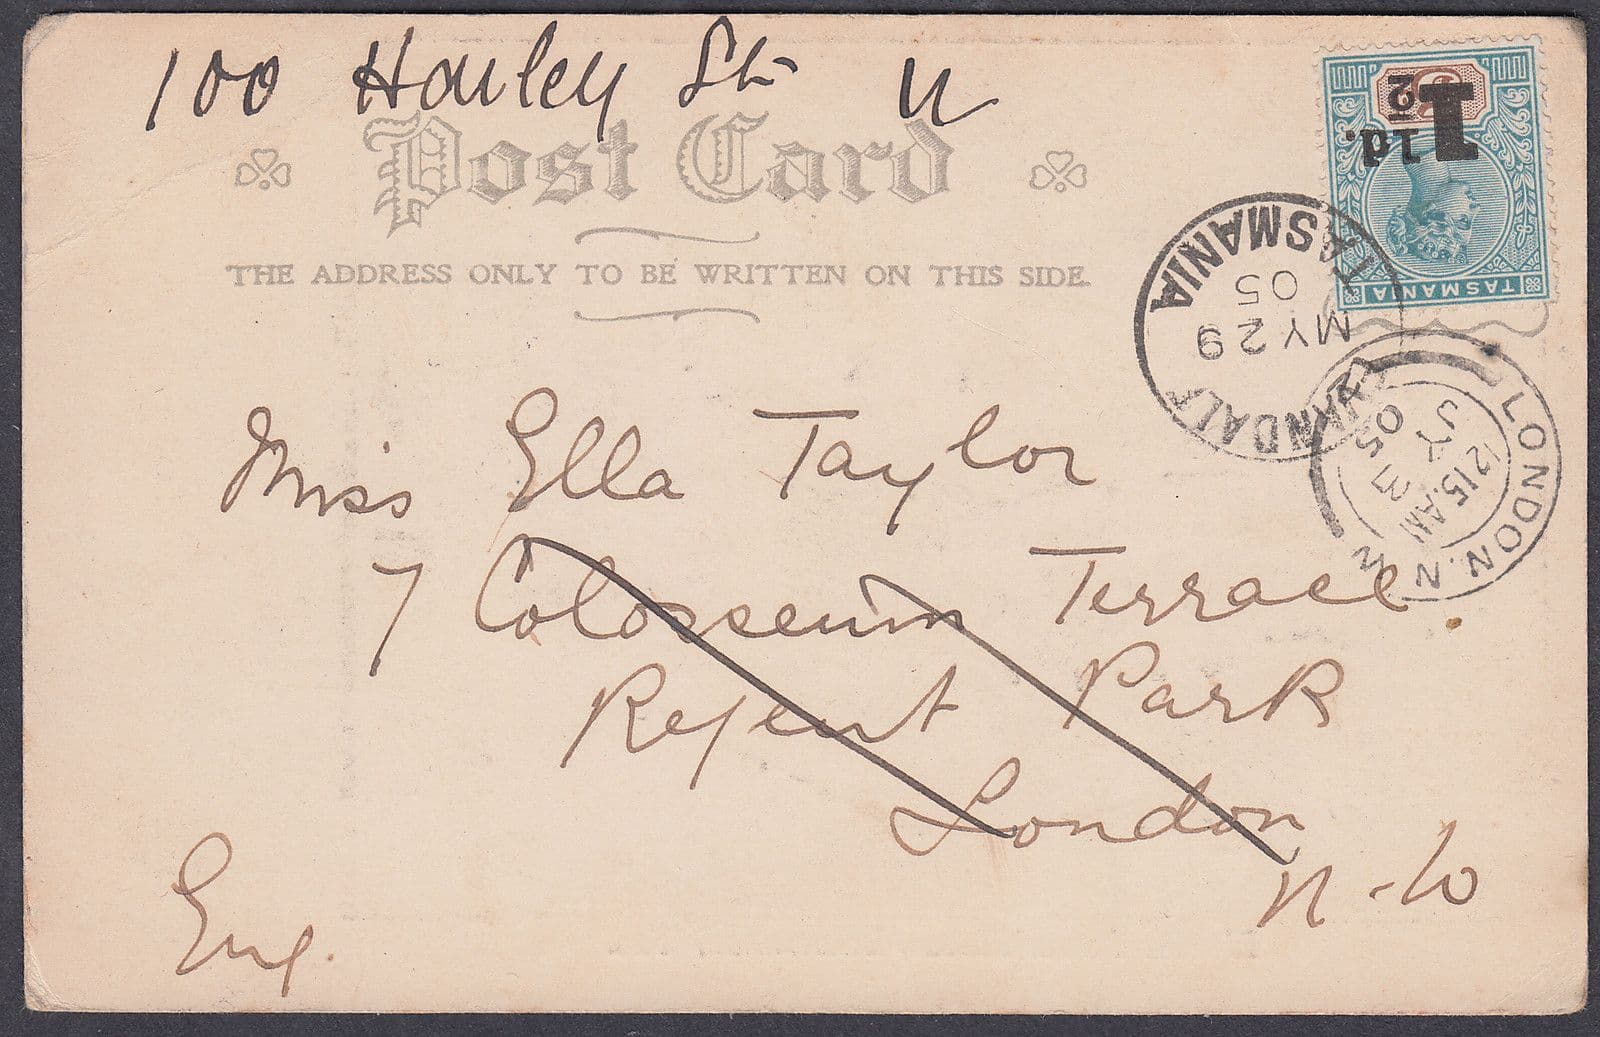 100 Harley St W
Post Card
THE ADDRESS ONLY TO BE WRITTEN ON THIS SIDE.
TASMANIA
1½d.
EVANDALE
TASMANIA
MY 29
05
LONDON. N.W
12 15. AM
JY 3
05
Miss Ella Taylor
7 Colosseum Terrace
Regent Park
London
N-W
Eng.